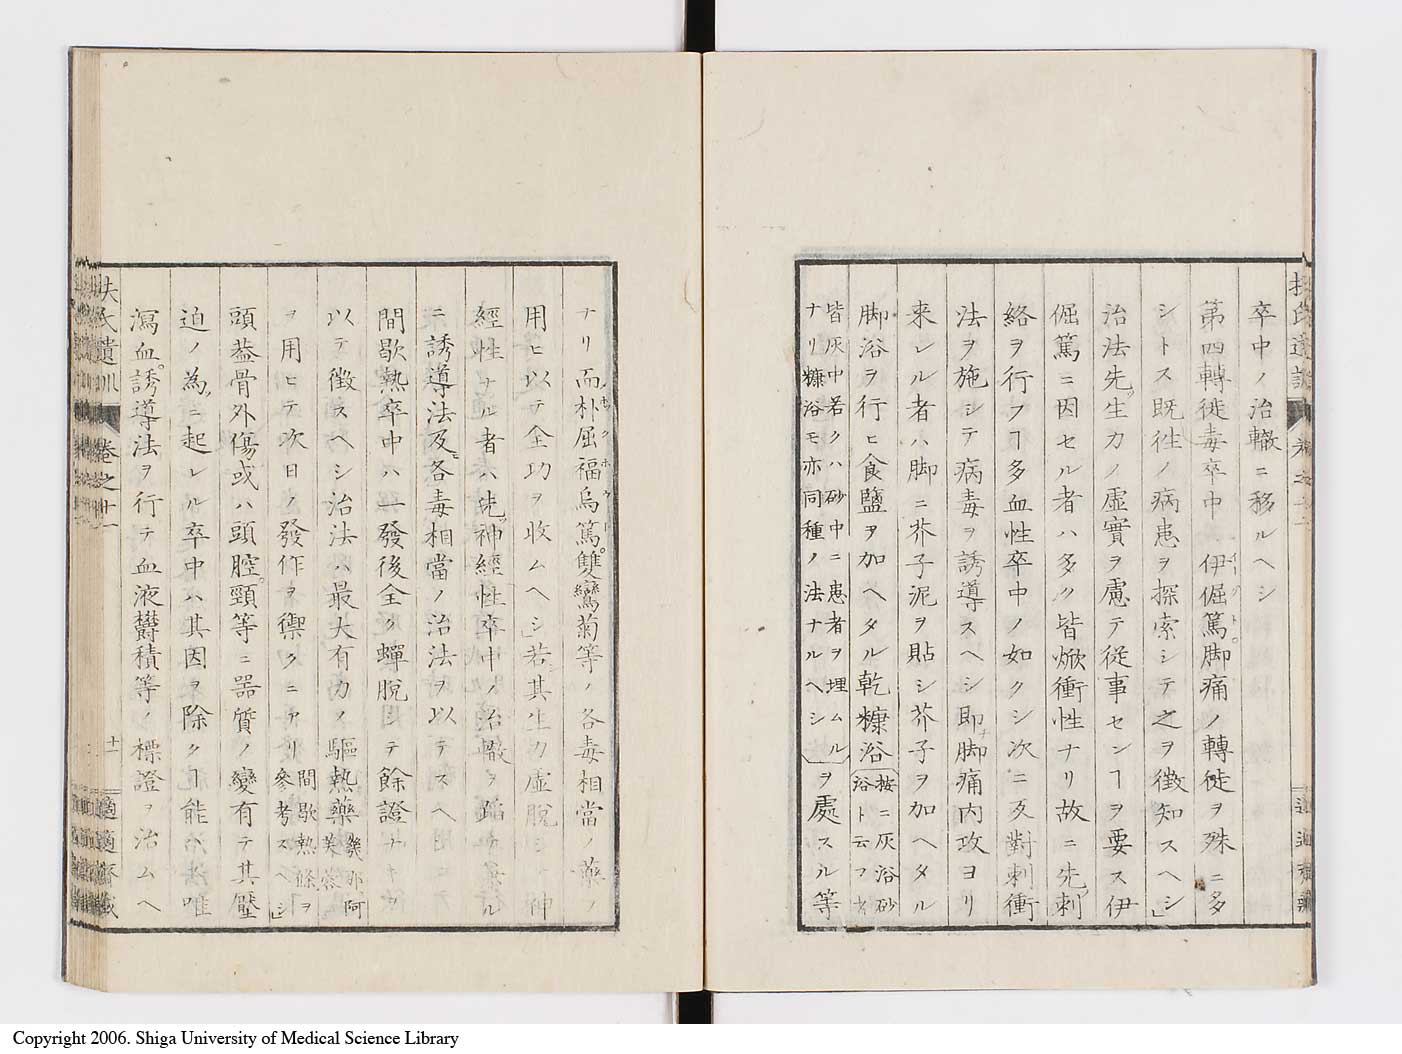 卒中ノ治轍ニ移ルヘシ
第四轉徙毒卒中 伊倔篤脚痛ノ轉徙ヲ殊ニ多
シトス既徃ノ病患ヲ探索シテ之ヲ徴知スヘシ」
治法先ツ生力ノ虛實ヲ慮テ従事センヿヲ要ス伊
倔篤ニ因セル者ハ多ク皆焮衝性ナリ故ニ先ツ刺
絡ヲ行フヿ多血性卒中ノ如クシ次ニ反對刺衝
法ヲ施シテ病毒ヲ誘導スヘシ即チ脚痛内攻ヨリ
来レル者ハ脚ニ芥子泥ヲ貼シ芥子ヲ加ヘタル
脚浴ヲ行ヒ食鹽ヲ加ヘタル乾糠浴 按ニ灰浴砂浴ト云フ者
皆灰中若クハ砂中ニ患者ヲ埋ムルナリ糠浴モ亦同種ノ法ナルヘシ ヲ處スル等
扶氏遺訓
適適齋藏
ナリ而朴屈福烏篤雙鸞菊等ノ各毒相當ノ藥ヲ
用ヒ以テ全功ヲ收ムヘシ」若其生力虛脫シ神
經性ナル者ハ先ツ神經性卒中ノ治轍ヲ踏テ兼ル
ニ誘導法及ヒ各毒相當ノ治法ヲ以テスヘ
間歇熱卒中ハ一發後全ク蟬脫シテ餘證ナキヲ
以テ徴スヘシ治法ハ最大有力ノ驅熱藥 幾那阿芙蓉
ヲ用ヒテ次日ノ發作ヲ禦クニアリ 間歇熱條ヲ參考スヘシ」
頭葢骨外傷或ハ頭腔頸等ニ器質ノ變有テ其壓
迫ノ為ニ起レル卒中ハ其因ヲ除クヿ能ハス治法唯
瀉血誘導法ヲ行テ血液欝積等ノ標證ヲ治ムヘ
扶氏遺訓 卷之十一
十一
適適齋藏
Copyright 2006. Shiga University of Medical Science Library